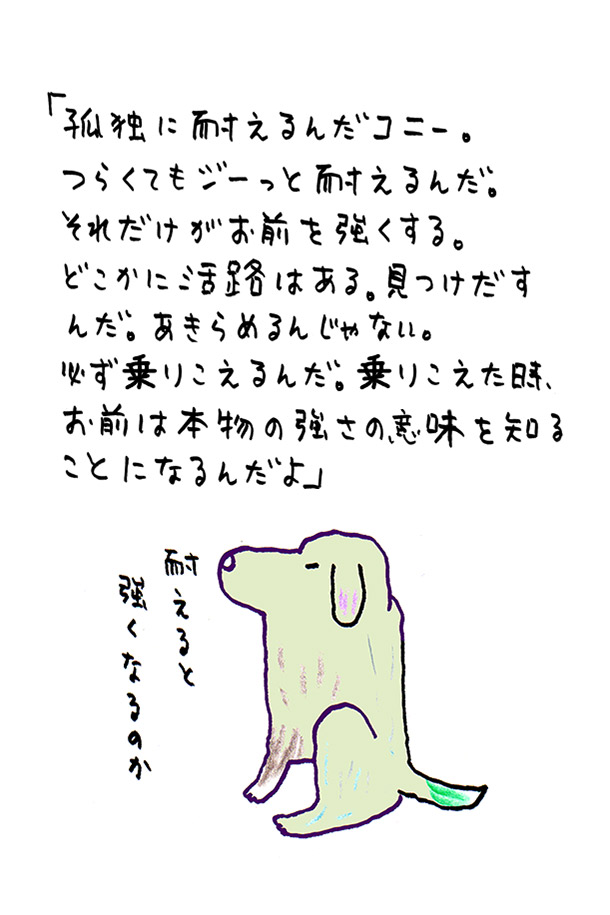 「孤独に耐えるんだコニー。
つらくてもジーっと耐えるんだ。
それだけがお前を強くする。
どこかに活路はある。見つけだす
んだ。あきらめるんじゃない。
必ず乗りこえるんだ。乗りこえた時、
お前は本物の強さの意味を知る
ことになるんだよ」
耐えると
強くなるのか